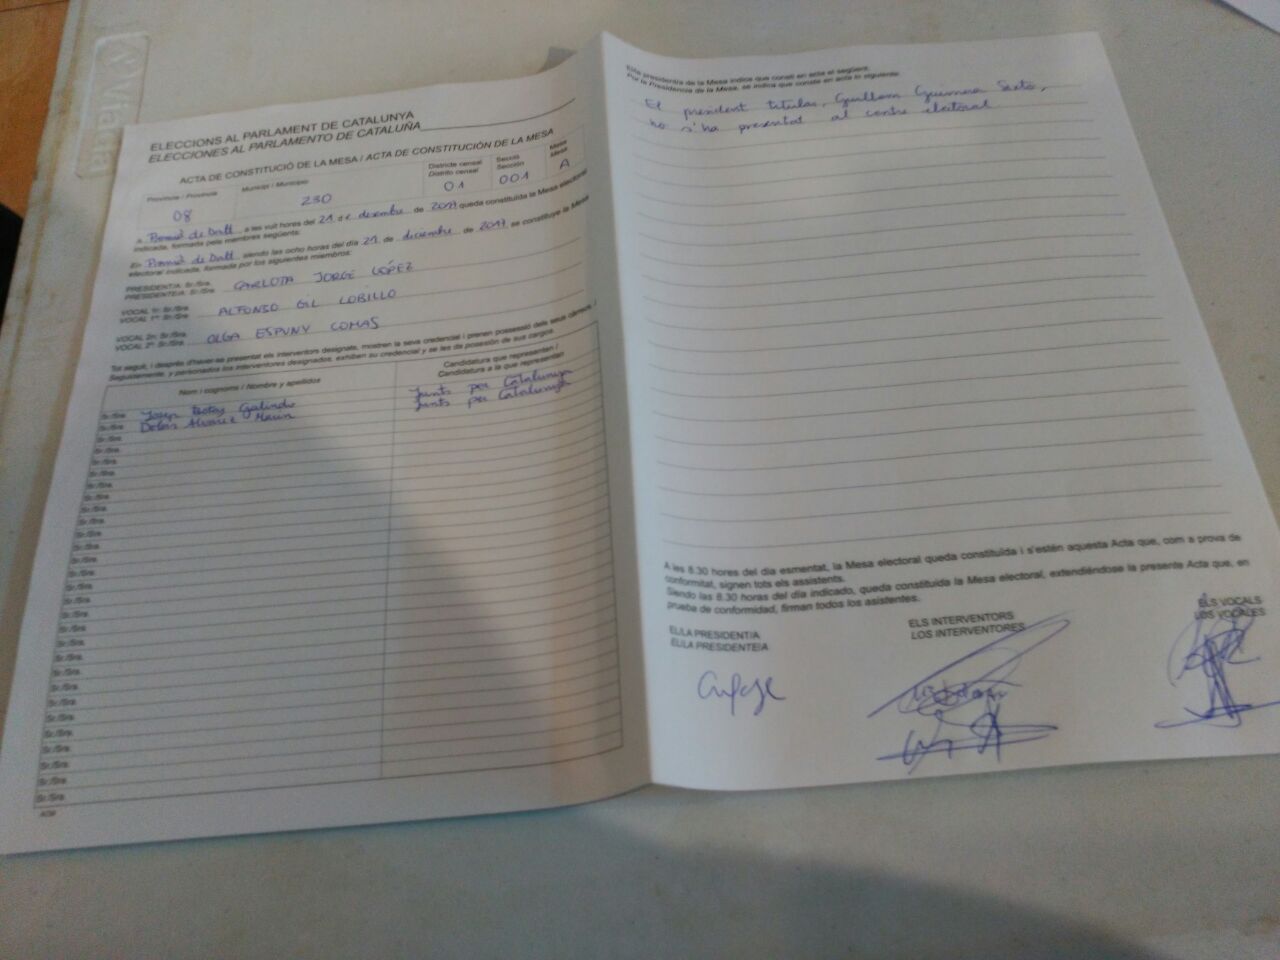 ELECCIONS AL PARLAMENT DE CATALUNYA
ELECCIONES AL PARLAMENTO DE CATALUÑA
ACTA DE CONSTITUCIÓ DE LA MESA / ACTA DE CONSTITUCIÓN DE LA MESA
Província / Provincia
Municipi / Municipio
Districte censal
Distrito censal
Secció
Sección
Mesa
Mesa
08
230
01
001
A
A Premià de Dalt a les vuit hores del 21 de desembre de 2017 queda constituïda la Mesa electoral
indicada, formada pels membres següents:
En Premià de Dalt siendo las ocho horas del día 21 de diciembre de 2017 se constituye la Mesa
electoral indicada, formada por los siguientes miembros:
PRESIDENT/A: Sr./Sra.
PRESIDENTE/A: Sr./Sra. CARLOTA JORGE LÓPEZ
VOCAL 1r: Sr./Sra.
VOCAL 1º: Sr./Sra. ALFONSO GIL LOBILLO
VOCAL 2n: Sr./Sra.
VOCAL 2º: Sr./Sra. OLGA ESPUNY COMAS
Tot seguit, i després d'haver-se presentat els interventors designats, mostren la seva credencial i prenen possessió dels seus càrrecs. /
Seguidamente, y personados los interventores designados, exhiben su credencial y se les da posesión de sus cargos.
Nom i cognoms / Nombre y apellidos
Candidatura que representen /
Candidatura a la que representan
Sr./Sra. Josep Galindo Junts per Catalunya
Sr./Sra. Dolors Alvarez Marin Junts per Catalunya
Sr./Sra.
Sr./Sra.
Sr./Sra.
Sr./Sra.
Sr./Sra.
Sr./Sra.
Sr./Sra.
Sr./Sra.
Sr./Sra.
Sr./Sra.
Sr./Sra.
Sr./Sra.
Sr./Sra.
Sr./Sra.
Sr./Sra.
Sr./Sra.
Sr./Sra.
Sr./Sra.
Sr./Sra.
Sr./Sra.
Sr./Sra.
Sr./Sra.
Sr./Sra.
Sr./Sra.
Sr./Sra.
El/la president/a de la Mesa indica que consti en acta el següent:
Por la Presidencia de la Mesa, se indica que conste en acta lo siguiente:
El president titular, Guillem Guimera Sixto,
no s'ha presentat al centre electoral
A les 8.30 hores del dia esmentat, la Mesa electoral queda constituïda i s'estén aquesta Acta que, com a prova de
conformitat, signen tots els assistents.
Siendo las 8.30 horas del día indicado, queda constituida la Mesa electoral, extendiéndose la presente Acta que, en
prueba de conformidad, firman todos los asistentes.
EL/LA PRESIDENT/A
EL/LA PRESIDENTE/A
ELS INTERVENTORS
LOS INTERVENTORES
ELS VOCALS
LOS VOCALES